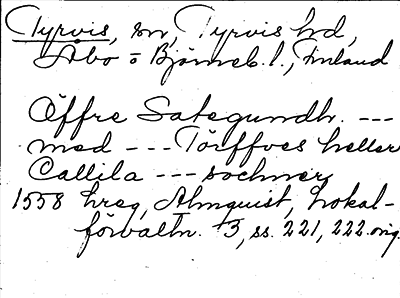 Tyrvis, sn, Tyrvis hd,
Åbo o Björneb. l., Finland
Öffre Sategundh. ---
med --- Törffves heller
Callila --- sochner
1558 hreg, Almquist, Lokal-
förvaltn. 3, ss. 221, 222. orig.